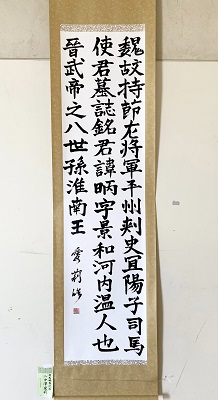 魏故持節左將軍平州刺史宜陽子司馬
使君墓誌銘君諱昞字景和河内温人也
晉武帝之八世孫淮南王